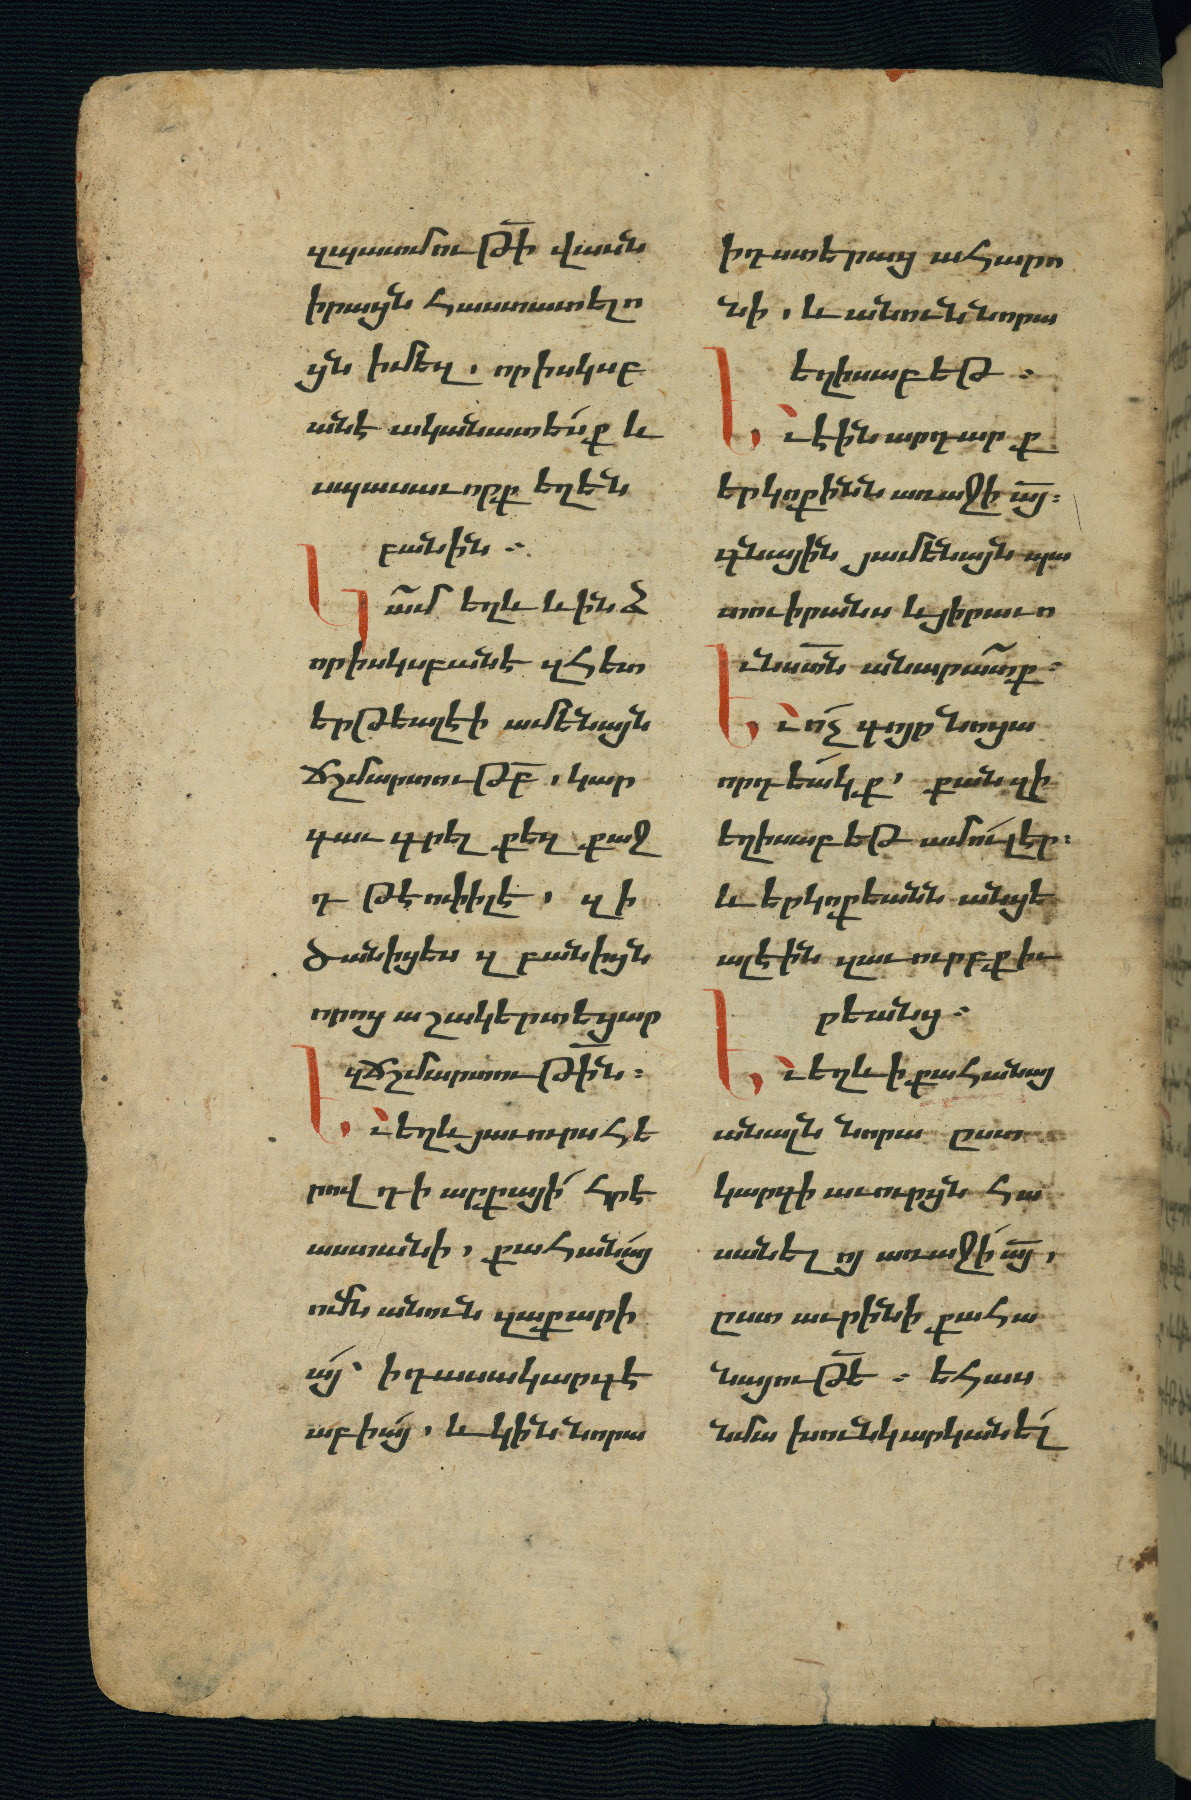 զպատմութի̅ վասն
իրացն հաստատելո
ցն ի մեզ, որ ի սկսբ
անէ ականատեսք և
սպասաւորք եղեն
բանին։
Կա̃մ եղև և ինձ
որ ի սկսբանէ զհետ
երթեալէի ամենայն
ճշմարտութբ̅, կար
գաւ գրել քեզ քաջ
դ թէոփիլէ, զի
ծանիցես զբանիցն
որոց աշակերտեցար
զճշմարտութի̅ն։
Եւ եղև յաւուրս հե
րովդի արքայի հրէ
աստանի, քահանայ
ոմն անուն զաքարի
այ՝ ի դասակարգէ
աբիայ, և կին նորա
ի դստերաց ահարո
նի, և անուն նորա
եղիսաբեթ։
Եւ էին արդարք
երկոքինն առաջի ա̅յ։
գնային յամենայն պա
տուիրանս և յիրաւո
ւնս տն̅ անարատք։
Եւ ոչ գոյր նոցա
որդեակք, քանզի
եղիսաբեթ ամուլ էր։
և երկոքեանն անցե
ալ էին զաւուրբք իւ
րեանց։
Եւ եղև ի քահանայ
անալն նորա ըստ
կարգի աւուրցն հա
սանել ոյ առաջի ա̅յ,
ըստ աւրինի քահա
նայութե̅։ եհաս
նմա խունկ արկանել